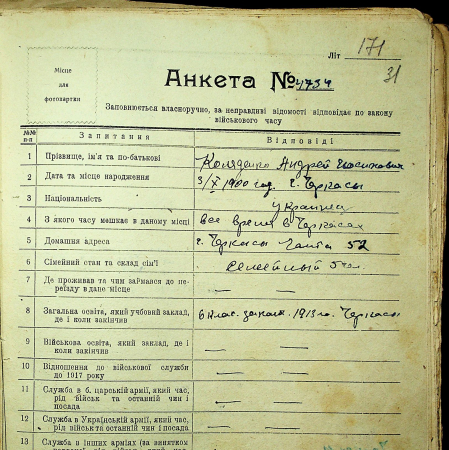 Літ 171
31
Місце
для
фотокартки
Анкета № 4734
Заповнюється власноручно, за неправдиві відомості відповідає по закону
військового часу
№№ п-п Запитання Відповіді
1 Прізвище, ім'я та по-батькові Коляденко Андрей
2 Дата та місце народження 3/X 1900 год. г. Черкасы
3 Національність украинец
4 З якого часу мешкає в даному місці все время в Черкасах
5 Домашня адреса г. Черкасы 52
6 Сімейний стан та склад сім'ї семейный
7 Де проживав та чим займався до переїзду в дане місце — —
8 Загальна освіта, який учбовий заклад, де і коли закінчив 6 клас. 1913 г. Черкасы
9 Військова освіта, який заклад, де і коли закінчив — —
10 Відношення до військової служби до 1917 року — —
11 Служба в б. царській армії, який час, рід військ та останній чин і посада — —
12 Служба в Українській армії, який час, рід військ та останній чин і посада — —
13 Служба в інших арміях (за винятком